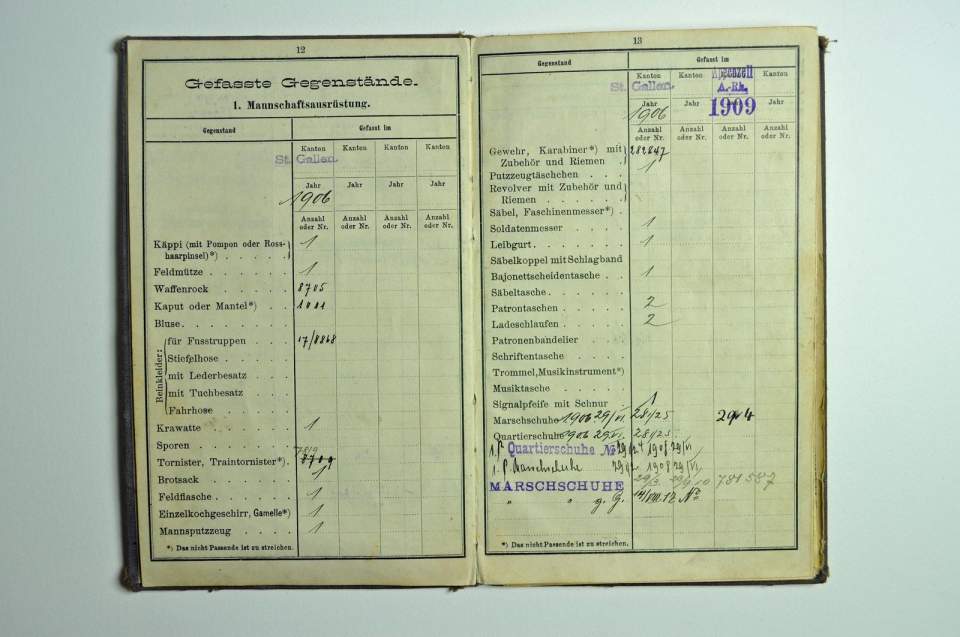 12
Gefasste Gegenstände.
1. Mannschaftsausrüstung.
Gegenstand Gefasst im
Kanton Kanton Kanton Kanton
St. Gallen.
Jahr Jahr Jahr Jahr
1906
Anzahl oder Nr. Anzahl oder Nr. Anzahl oder Nr. Anzahl oder Nr.
Käppi (mit Pompon oder Ross- 1
haarpinsel)*) . . . . .
Feldmütze . . . . . 1
Waffenrock . . . . . 8705
Kaput oder Mantel*) .
Bluse . . . . . . .
Reinkleider:
für Fusstruppen . . . 17/8868
Stiefelhose . . . . .
mit Lederbesatz . . .
mit Tuchbesatz . . .
Fahrhose . . . . .
Krawatte . . . . . 1
Sporen . . . . . .
Tornister, Traintornister*) .
Brotsack . . . . . 1
Feldflasche . . . . . 1
Einzelkochgeschirr, Gamelle*) 1
Mannsputzzeug . . . . 1
*) Das nicht Passende ist zu streichen.
13
Gegenstand Gefasst im
Kanton Kanton Kanton
St. Gallen. Appenzell
A.-Rh.
Jahr Jahr Jahr
1906 1909
Anzahl oder Nr. Anzahl oder Nr. Anzahl oder Nr. Anzahl oder Nr.
Gewehr, Karabiner*) mit 282847
Zubehör und Riemen . 1
Putzzeugtäschchen . . .
Revolver mit Zubehör und
Riemen . . . . . .
Säbel, Faschinenmesser*) .
Soldatenmesser . . . . 1
Leibgurt . . . . . . 1
Säbelkoppel mit Schlagband
Bajonettscheidentasche . . 1
Säbeltasche . . . . . .
Patrontaschen . . . . 2
Ladeschlaufen . . . . 2
Patronenbandelier . . .
Schriftentasche . . . .
Trommel, Musikinstrument*)
Musiktasche . . . . .
Signalpfeife mit Schnur . 1
Marschschuhe 1906 29/VI. 281/25 29 4
Quartierschuhe 1906 29/VI. 281/25
1. P. Quartierschuhe No 1908 29/VI
1. P. Marschschuhe 1908 29/VI
MARSCHSCHUHE
" " g. G. 14/VIII.12. No
*) Das nicht Passende ist zu streichen.